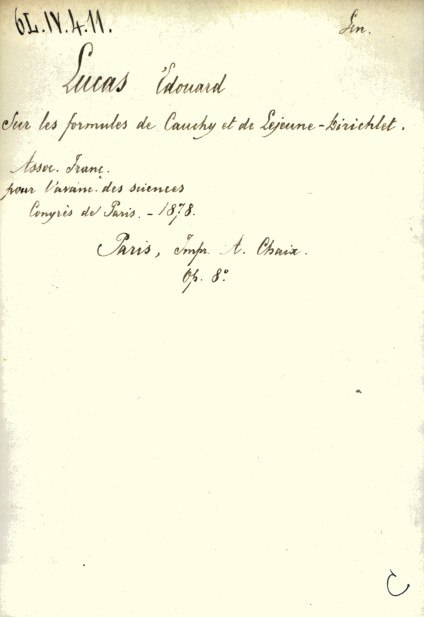 6L.IV.4.11.
Gen.
Lucas Édouard
Sur les formules de Cauchy et de Lejeune-Dirichlet.
Assoc. Franç.
pour l'avanc. des sciences
Congrès de Paris. - 1878.
Paris, Impr. A. Chaix.
Op. 8°.
C